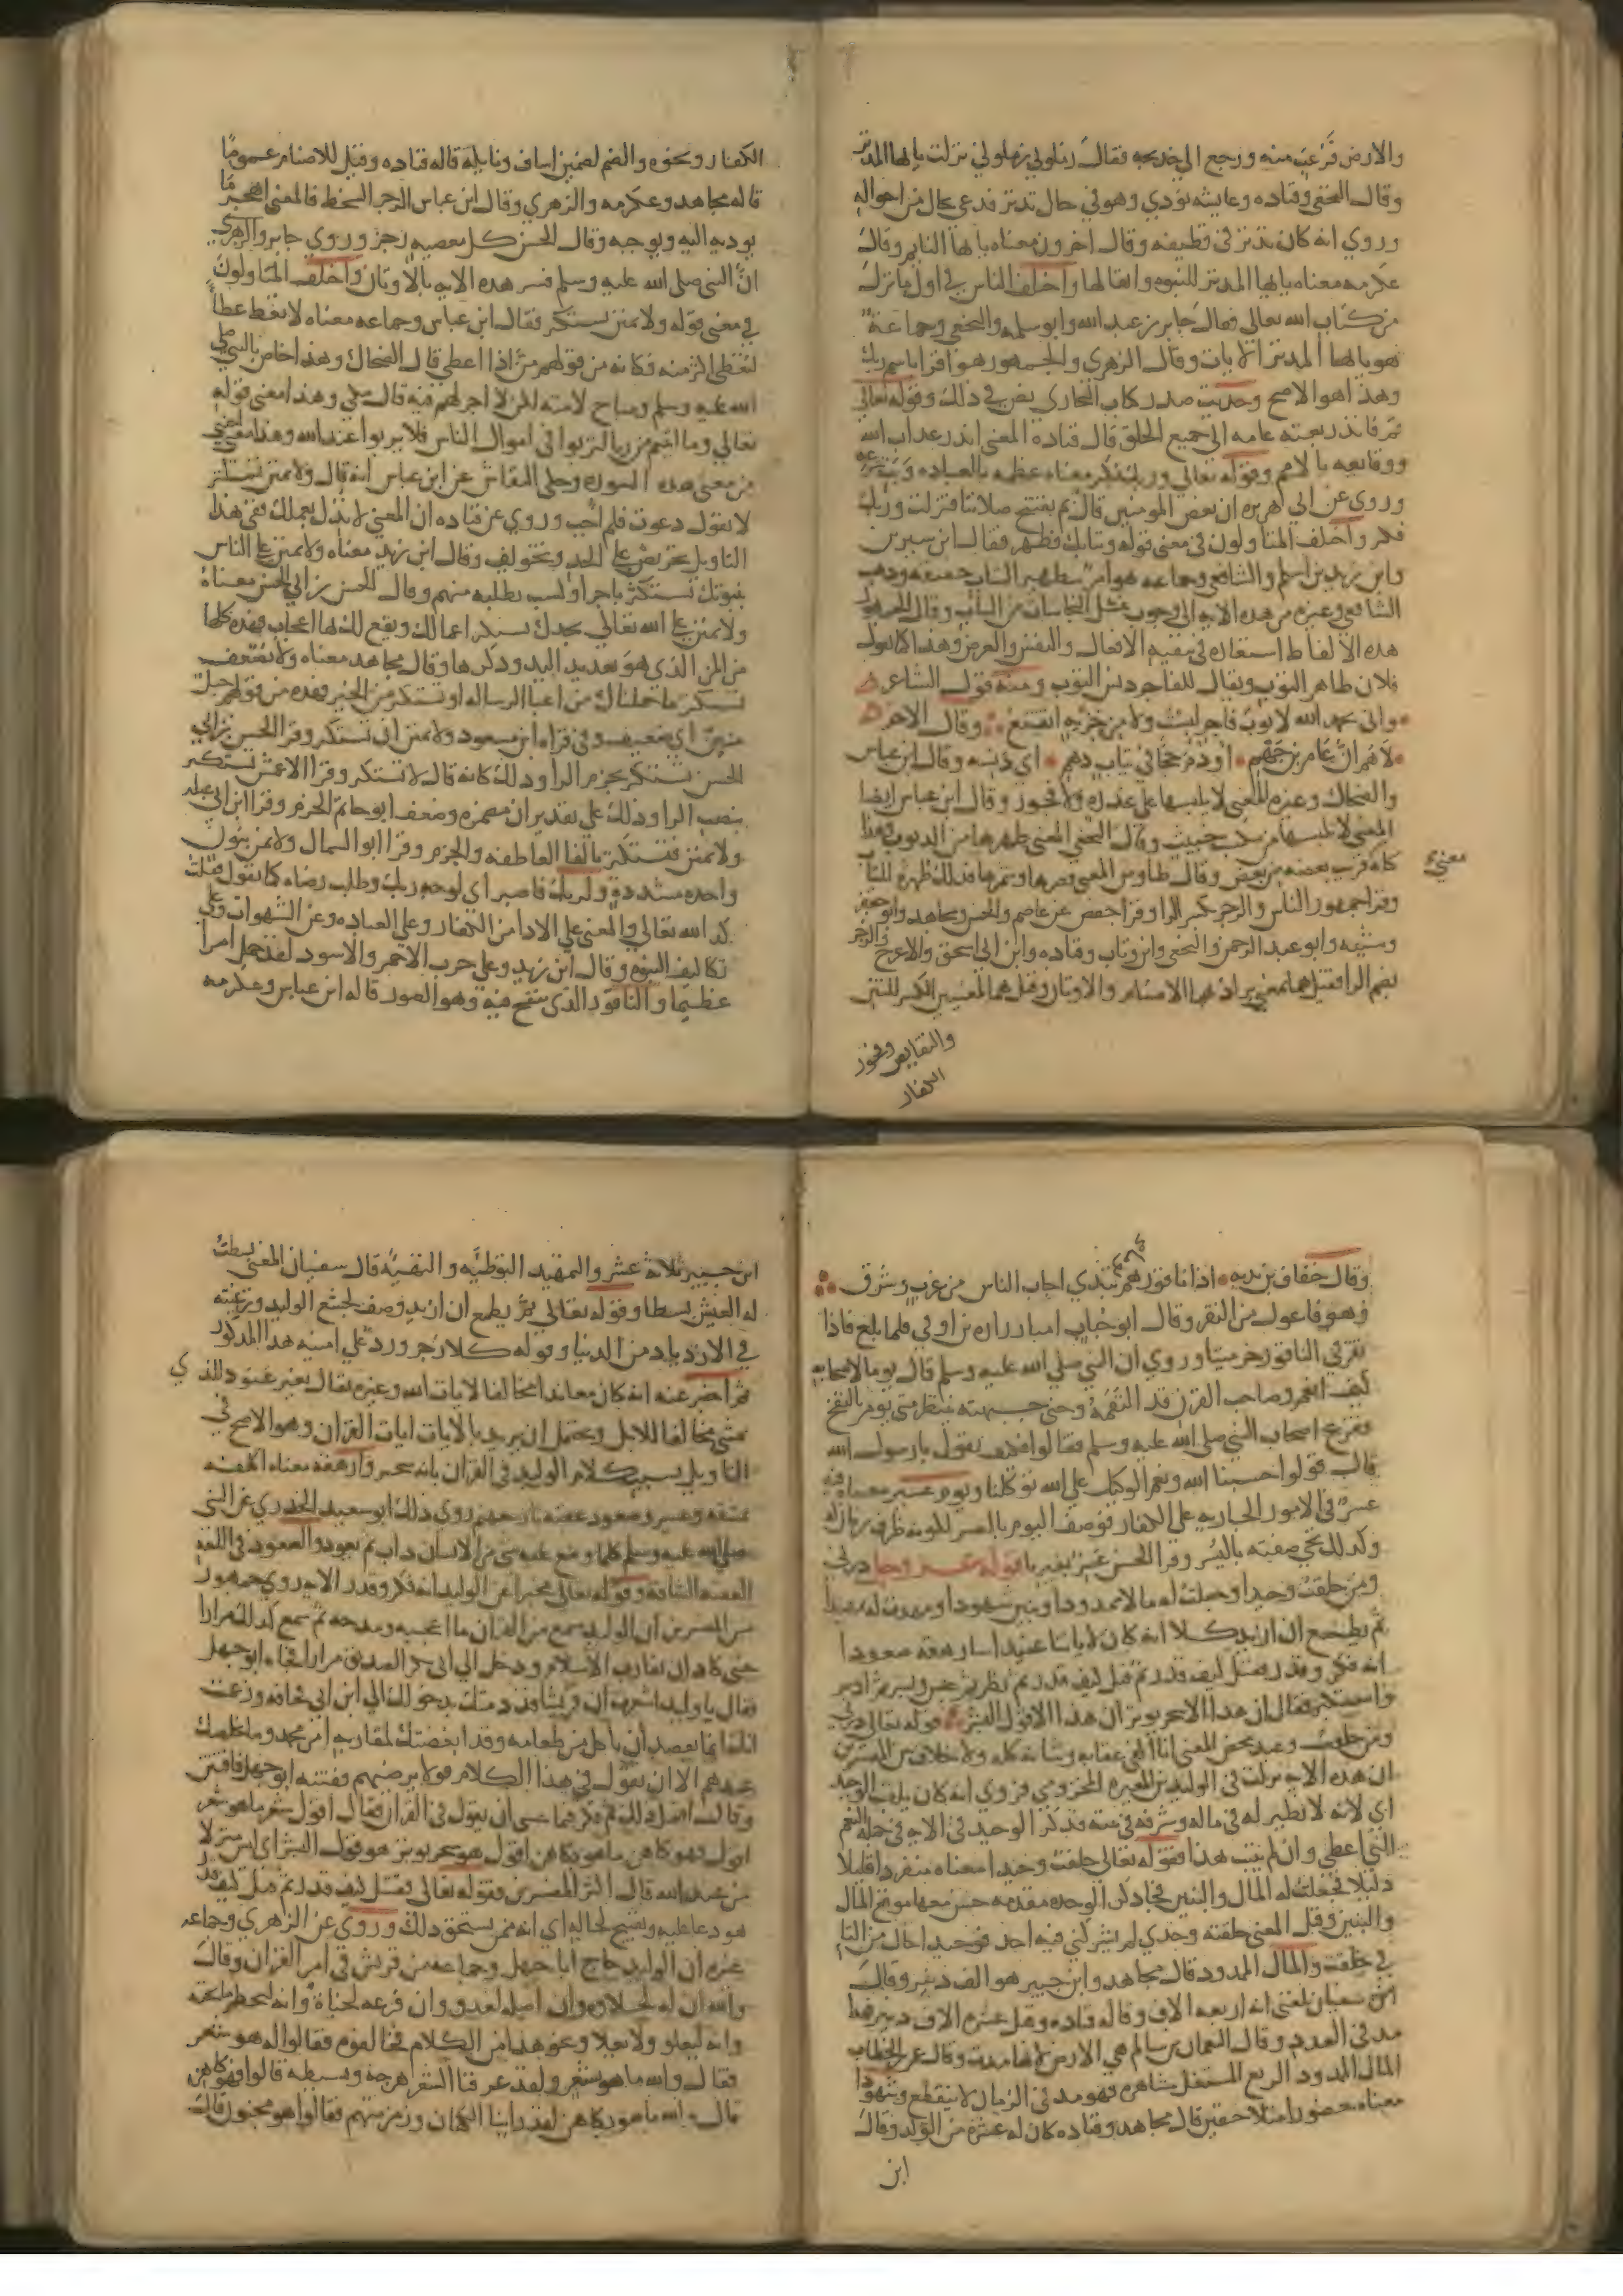 والارض فرعبت منه ورجع الى خديجه فقال زملوني زملوني نزلت يايها المدثر
وقال النخعي وقتاده وعايشه نودي وهو في حال تدثر فدعي بحال من احواله
وروي انه كان تدثر في قطيفه وقال اخرون معناه يايها النايم وقال
عكرمه معناه يايها المدثر للنبوه واثقالها واختلف الناس في اول ما نزل
من كتاب الله تعالى فقال جابر بن عبد الله وابو سلمه والنخعي وجماعة
هو يايها المدثر الايات وقال الزهري والجمهور هو اقرا باسم ربك
وهذا هو الاصح وحديث صدر كتاب البخاري نص في ذلك وقوله تعالى
قم فانذر بعثه عامه الى جميع الخلق قال قتاده المعنى انذر عذاب الله
ووقايعه بالامم وقوله تعالى وربك فكبر معناه عظمه بالعباده
وروي عن ابي هريره ان بعض المومنين قال بم نفتتح صلاتنا فنزلت وربك
فكبر واختلف المتاولون في معنى قوله وثيابك فطهر فقال ابن سيرين
وابن زيد بن اسلم والشافعي وجماعه هو امر بتطهير الثياب حقيقه وذهب
الشافعي وغيره من هذه الايه الى وجوب غسل النجاسات من الثياب وقال الجمهور
هذه الالفاظ استعاره في تنقيه الافعال والنفس والعرض وهذا كما تقول
فلان طاهر الثوب ويقال للفاجر دنس الثوب ومنه قول الشاعر
واني بحمد الله لا ثوب فاجر لبست ولا من خزية اتقنع وقال الاخر
لاهم ان عامر بن جهم اوذم حجا في ثياب دسم اي دنسه وقال ابن عباس
والضحاك وغيره المعنى لا يلبسها على غدره ولا فجور وقال ابن عباس ايضا
المعنى لا تلبسها من مكسب خبيث وقال النخعي المعنى طهرها من الذنوب وهذا
كله قريب بعضه من بعض وقال طاوس المعنى قصرها وشمرها فذلك طهرة للثياب
معنى
وقرا جمهور الناس والرجز بكسر الرا وقرا حفص عن عاصم والحسن ومجاهد وابو جعفر
وشيبه وابو عبد الرحمن والنخعي وابن وثاب وقتاده وابن ابي اسحق والاعرج والرجز
بضم الرا فقيل هما بمعنى يراد بهما الاصنام والاوثان وقيل هما لمعنيين الكسر للنتن
والنقايص وفجور
الكفار
الكفار ونحوه والضم لصنمين اساف ونايلة قاله قتاده وقيل للاصنام عموما
قاله مجاهد وعكرمه والزهري وقال ابن عباس الرجز السخط فالمعنى اهجر ما
يوديه اليه ويوجبه وقال الحسن كل معصيه رجز وروي جابر والزهري
ان النبي صلى الله عليه وسلم فسر هذه الايه بالاوثان واختلف المتاولون
في معنى قوله ولا تمنن تستكثر فقال ابن عباس وجماعه معناه لا تعط عطا
لتعطى اكثر منه وكانه من قولهم من اذا اعطى قال الضحاك وهذا خاص بالنبي صلى
الله عليه وسلم ومباح لامته لكن لا اجر لهم فيه قال مكي وهذا معنى قوله
تعالى وما اتيتم من ربا لتربوا في اموال الناس فلا يربوا عند الله وهذا معنى اجنبي
من معنى هذه السوره وحكى النقاش عن ابن عباس انه قال ولا تمنن تستكثر
لا تقول دعوت فلم اجب وروي عن قتاده ان المعنى لا تدل بعملك ففي هذا
التاويل تحريض على الجد وتخويف وقال ابن زيد معناه ولا تمنن على الناس
بنبوتك تستكثر باجر او كسب تطلبه منهم وقال الحسن بن ابي الحسن معناه
ولا تمنن على الله تعالى بجدك تستكثر اعمالك ويقع لك لها اعجاب فهذه كلها
من المن الذي هو تعديد اليد وذكرها وقال مجاهد معناه ولا تضعف
تستكثر ما حملناك من اعبا الرساله او تستكثر من الخير فهذه من قولهم حبل
منين اي ضعيف وفي قراه ابن مسعود ولا تمنن ان تستكثر وقرا الحسن بن ابي
الحسن تستكثر بجزم الرا وذلك كانه قال لا تستكثر وقرا الاعمش تستكثر
بنصب الرا وذلك على تقدير ان مضمره وضعف ابو حاتم الجزم وقرا ابن ابي عبله
ولا تمنن فتستكثر بالفا العاطفه والجزم وقرا ابو السمال ولا تمن بنون
واحده مشددة ولربك فاصبر اي لوجه ربك وطلب رضاه كما تقول فعلت
كذا لله تعالى والمعنى على الاذا من الكفار وعلى العباده وعن الشهوات وعلى
تكاليف النبوه وقال ابن زيد وعلى حرب الاحمر والاسود لقد حمل امرا
عظيما والناقور الذي ينفخ فيه وهو الصور قاله ابن عباس وعكرمه
وقال خفاف بن ندبه اذا ناقورهم يبدي اجاب الناس من غرب وشرق
فهو فاعول من النقر وقال ابو حباب امنا زراره بن اوفى فلما بلغ فاذا
نقر في الناقور خر ميتا وروي ان النبي صلى الله عليه وسلم قال يوما لاصحابه
كيف انعم وصاحب القرن قد التقمه وحنى جبهته ينتظر متى يومر بالنفخ
ففزع اصحاب النبي صلى الله عليه وسلم فقالوا كيف نقول يا رسول الله
قال قولوا حسبنا الله ونعم الوكيل على الله توكلنا ويوم عسير معناه فيه
عسر في الامور الجاريه على الكفار فوصف اليوم بالعسر لكونه ظرف زمان له
وكذلك تجي صفته باليسر وقرا الحسن عسر بغير يا قوله عز وجل ذرني
ومن خلقت وحيدا وجعلت له مالا ممدودا وبنين شهودا ومهدت له تمهيدا
ثم يطمع ان ازيد كلا انه كان لاياتنا عنيدا سارهقه صعودا
انه فكر وقدر فقتل كيف قدر ثم قتل كيف قدر ثم نظر ثم عبس وبسر ثم ادبر
واستكبر فقال ان هذا الا سحر يوثر ان هذا الا قول البشر قوله تعالى ذرني
ومن خلقت وعيد محض المعنى انا اكفي عقابه وشانه كله ولا خلاف بين المفسرين
ان هذه الايه نزلت في الوليد بن المغيره المخزومي فروي انه كان يلقب الوحيد
اي لانه لا نظير له في ماله وشرفه في بيته فذكر الوحيد في الايه في جمله النعم
التي اعطي وان لم يثبت هذا فقوله تعالى خلقت وحيدا معناه منفردا قليلا
ذليلا فجعلت له المال والبنين فجا ذكر الوحده مقدمه حسن معها موقع المال
والبنين وقيل المعنى خلقته وحدي لم يشركني فيه احد فوحيدا حال من التا
في خلقت والمال الممدود قال مجاهد وابن جبير هو الف دينر وقال
سفيان بلغني انه اربعه الاف وقاله قتاده وقيل عشره الاف دينر فهذا
مد في العدد وقال النعمان بن سالم هي الارض لانها مدت وقال عمر بن الخطاب
المال الممدود الريع المستغل مشاهره فهو مد في الزمان لا ينقطع وشهودا
معناه حضورا متلاحقين قال مجاهد وقتاده كان له عشره من الولد وقال
ابن
ابن جبير ثلاثة عشر والتمهيد التوطيه والتهيئه قال سفيان المعنى بسطت
له العيش بسطا وقوله تعالى ثم يطمع ان ازيد وصف لجشع الوليد ورغبته
في الازدياد من الدنيا وقوله كلا زجر ورد على امنيه هذا المذكور
ثم اخبر عنه انه كان معاندا مخالفا لايات الله وعبره يقال بعير عنود للذي
يمشي مخالفا للابل ويحتمل ان يريد بالايات ايات القران وهو الاصح في
التاويل بسبب كلام الوليد في القران بانه سحر وارهقه معناه اكلفه
بمشقه وعسر وصعود عقبه نار جهنم روي ذلك ابو سعيد الخدري عن النبي
صلى الله عليه وسلم كلما وضع عليه شي من الانسان ذاب ثم يعود والصعود في اللغه
العقبه الشاقه وقوله تعالى مخبرا عن الوليد انه فكر وقدر الايه روي جمهور
من المفسرين ان الوليد سمع من القران ما اعجبه ومدحه ثم سمع كذلك مرارا
حتى كاد ان يقارب الاسلام ودخل الى ابي بكر الصديق مرارا فجاه ابو جهل
فقال يا وليد اشعرت ان قريشا قد ذمتك بدخولك الى ابن ابي قحافه وزعمت
انك انما تقصد ان تاكل من طعامه وقد ابغضتك لمقاربه امر محمد وما يخلصك
عندهم الا ان تقول في هذا الكلام قولا يرضيهم ففتنه ابو جهل فافتتن
وقال افعل ذلك ثم فكر فيما عسى ان يقول في القران فقال اقول شعر ما هو شعر
اقول هو كاهن ما هو بكاهن اقول هو سحر يوثر هو قول البشر اي ليس منزلا
من عند الله قال اكثر المفسرين فقوله تعالى فقتل كيف قدر ثم قتل كيف قدر
هو دعا عليه وتقبيح لحاله اي انه ممن يستحق ذلك وروي عن الزهري وجماعه
غيره ان الوليد حاج ابا جهل وجماعه من قريش في امر القران وقال
والله ان له لحلاوه وان اصله لعذق وان فرعه لجناة وانه ليحطم ما تحته
وانه ليعلو ولا يعلا ونحو هذا من الكلام فخالفوه فقالوا له هو شعر
فقال والله ما هو بشعر ولقد عرفنا الشعر هزجه وبسيطه قالوا فهو كاهن
قال والله ما هو بكاهن لقد راينا الكهان وزمزمتهم فقالوا هو مجنون قال